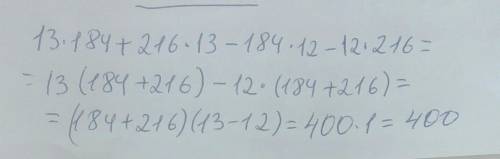 13·184+216·13-184·12-12·216=
=13(184+216)-12·(184+216)=
=(184+216)(13-12)=400·1=400